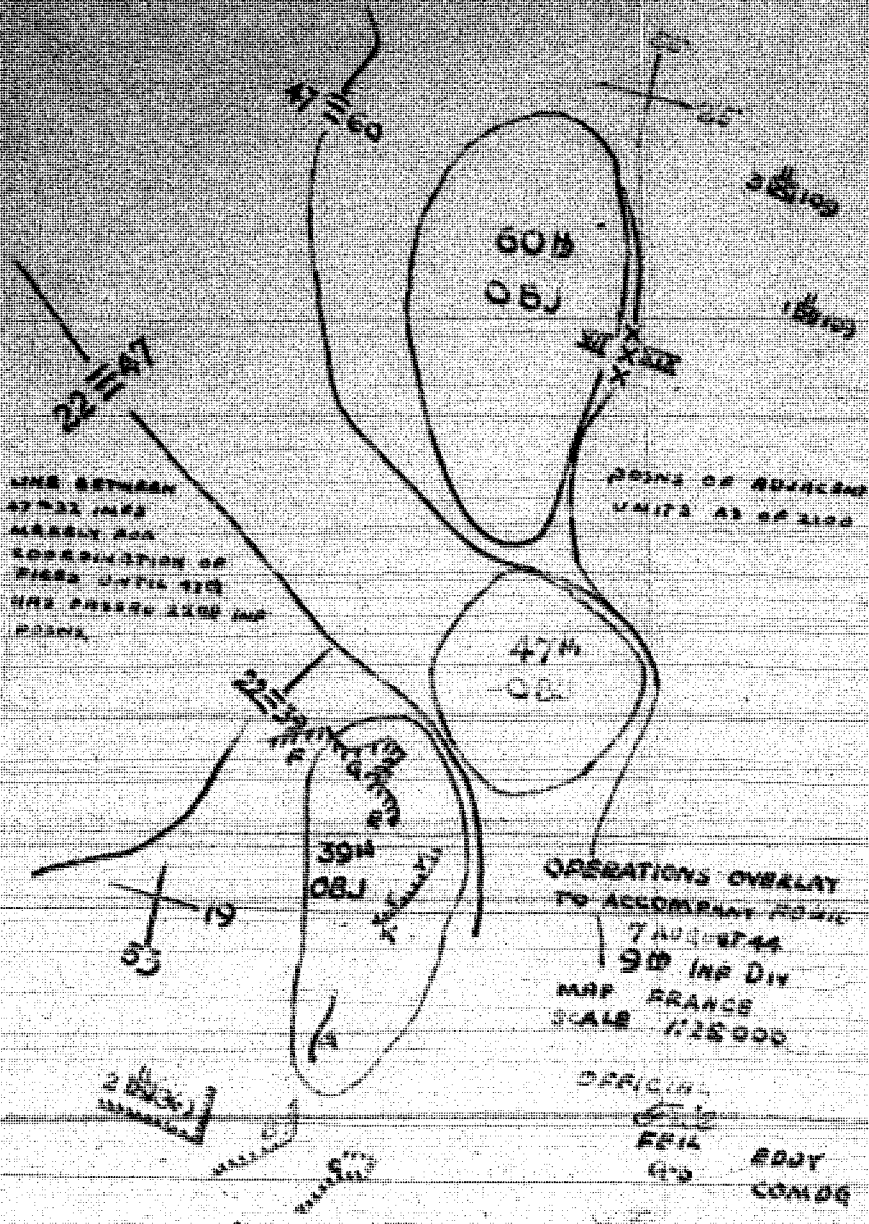 47 60
25
60th
OBJ
22 47
XIX
LINE BETWEEN
47 & 22 INFS
MERELY FOR
COORDINATION OF
FIRES UNTIL 47th
HAS PASSED 22nd INF
POSNS.
POSNS OF ADJACENT
UNITS AS OF 2100
47th
OBJ
22 39
F
G
E
39th
OBJ
K
A
19
53
OPERATIONS OVERLAY
TO ACCOMPANY
7 AUGUST 44
9th INF DIV
MAP FRANCE
SCALE 1:25000
OFFICIAL
FEIL
EDDY
COMDG